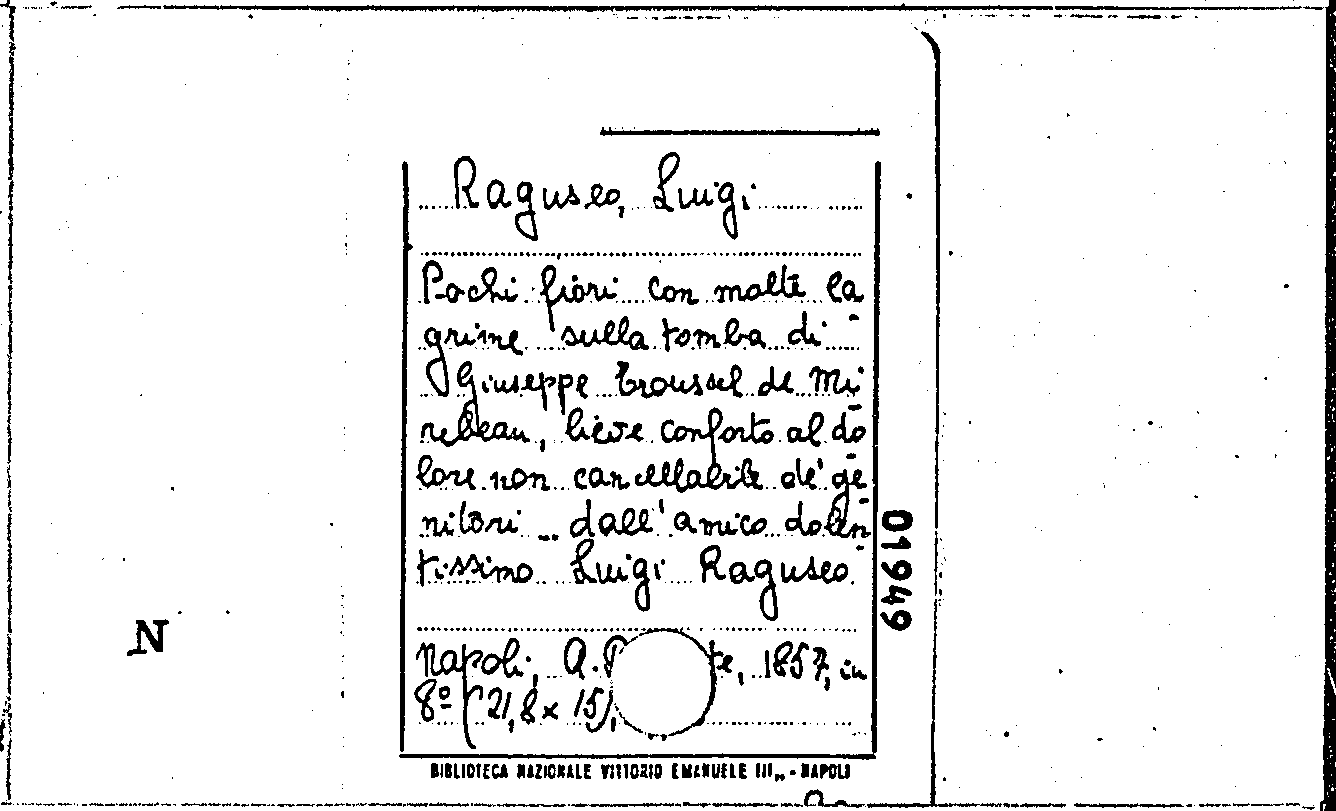 Raguseo, Luigi
Pochi fiori con molte la-
grime sulla tomba di
Giuseppe Troussel de Mi-
rebeau, lieve conforto al do-
lore non cancellabile de' ge-
nitori .. dall'amico dolen-
tissimo Luigi Raguseo
Napoli, A. 1857, in
8º (21,8 x 15),
BIBLIOTECA NAZIONALE VITTORIO EMANUELE III,, - NAPOLI
01949
N